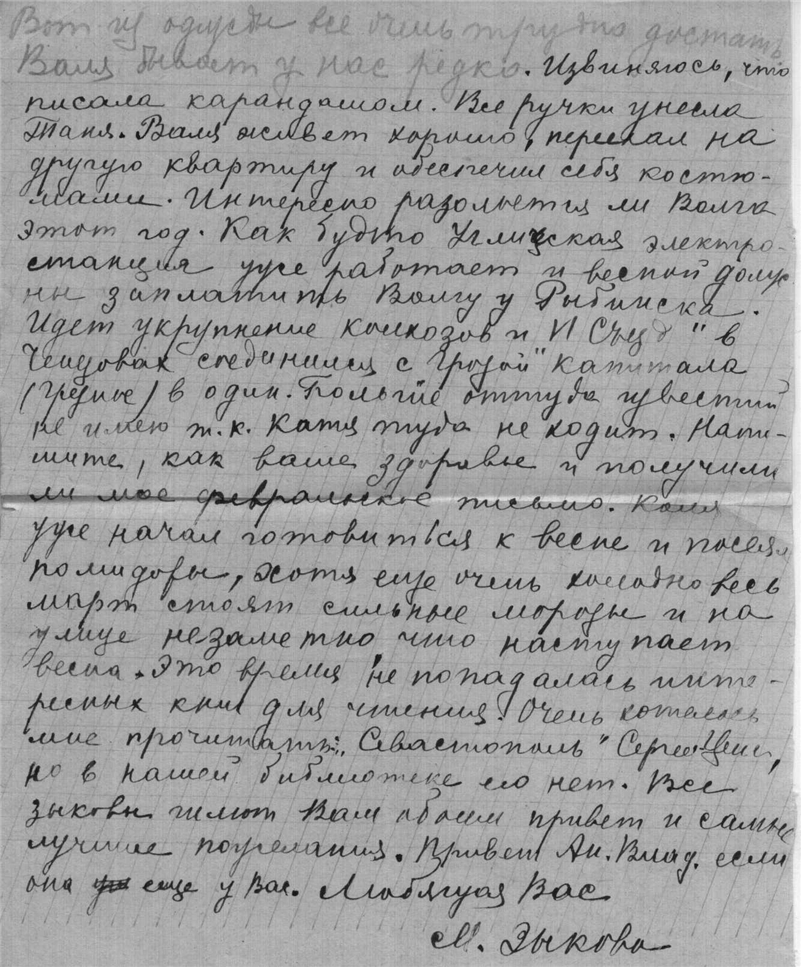 Вот из одежды все очень трудно достать
Валя бывает у нас редко. Извиняюсь, что
писала карандашом. Все ручки унесла
Таня. Валя живет хорошо, переехал на
другую квартиру и обеспечил себя костю-
мами. Интересно разольется ли Волга
этот год. Как будто Угличская электро-
станция уже работает и весной долж
ны
Волгу у Рыбинска.
Идет укрупнение колхозов и И Съезд" в
соединился с Грозой" капитала
в один. Больше оттуда известий
не имею т.к. Катя туда не ходит. Напи-
шите, как ваше здоровье и получили
ли мое февральское письмо. Коля
уже начал готовиться к весне и посеял
помидоры, хотя еще очень холодно весь
март стоят сильные морозы и на
улице незаметно, что наступает
весна. Это время не попадалась инте-
ресных книг для чтения. Очень хотелось
мне прочитать: „Севастополь"
но в нашей библиотеке его нет. Все
Зыковы шлют Вам обоим привет и самые
лучшие пожелания. Привет Ан. Влад. если
она еще у Вас. Любящая Вас
М. Зыкова